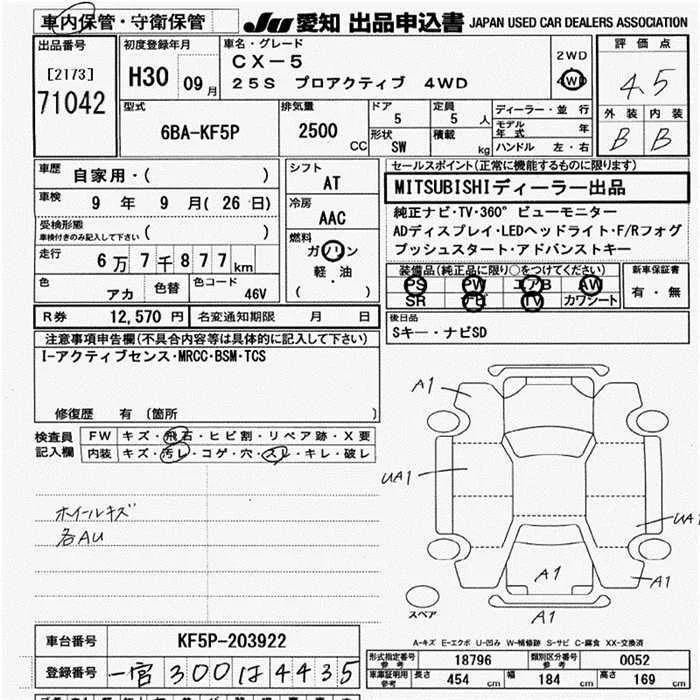 車内保管・守衛保管
JU 愛知 出品申込書 JAPAN USED CAR DEALERS ASSOCIATION
出品番号
[2173]
71042
初度登録年月
H30 09月
車名・グレード
CX-5
25S プロアクティブ 4WD
2WD
4WD
評価点
4.5
外装 内装
B B
型式
6BA-KF5P
排気量
2500 CC
ドア
5
定員
5 人
形状
SW
積載
kg
ディーラー・並行
モデル年式 年
ハンドル 左・右
車歴
自家用・( )
車検
9 年 9 月(26日)
受検形態
車検付きのみ記入して下さい ( )
走行
6万7千877km
色
アカ
色替
色コード
46V
シフト
AT
冷房
AAC
燃料
ガソリン
軽・油
( )
R券 12,570 円 名変通知期限 月 日
セールスポイント(正常に機能するものに限ります)
MITSUBISHIディーラー出品
純正ナビ・TV・360°ビューモニター
ADディスプレイ・LEDヘッドライト・F/Rフォグ
プッシュスタート・アドバンストキー
装備品(純正品に限り○をつけてください)
PS PW エアB AW
SR ナビ TV カワシート
新車保証書
有・無
後日品
Sキー・ナビSD
注意事項申告欄(不具合内容等は具体的に記入して下さい)
I-アクティブセンス・MRCC・BSM・TCS
修復歴 有 〔箇所 〕
検査員記入欄
FW キズ・飛石・ヒビ割・リペア跡・X要
内装 キズ・汚レ・コゲ・穴・スレ・キレ・破レ
ホイールキズ
各AU
A1
UA1
UA1
A1
A1
A1
スペア
A-キズ E-エクボ U-凹み W-補修跡 S-サビ C-腐食 XX-交換済
車台番号 KF5P-203922
登録番号 一宮 300 は 4435
形式指定番号 参考 18796 類別区分番号 参考 0052
車庫証明用 参考 長さ 454 cm 幅 184 cm 高さ 169 cm